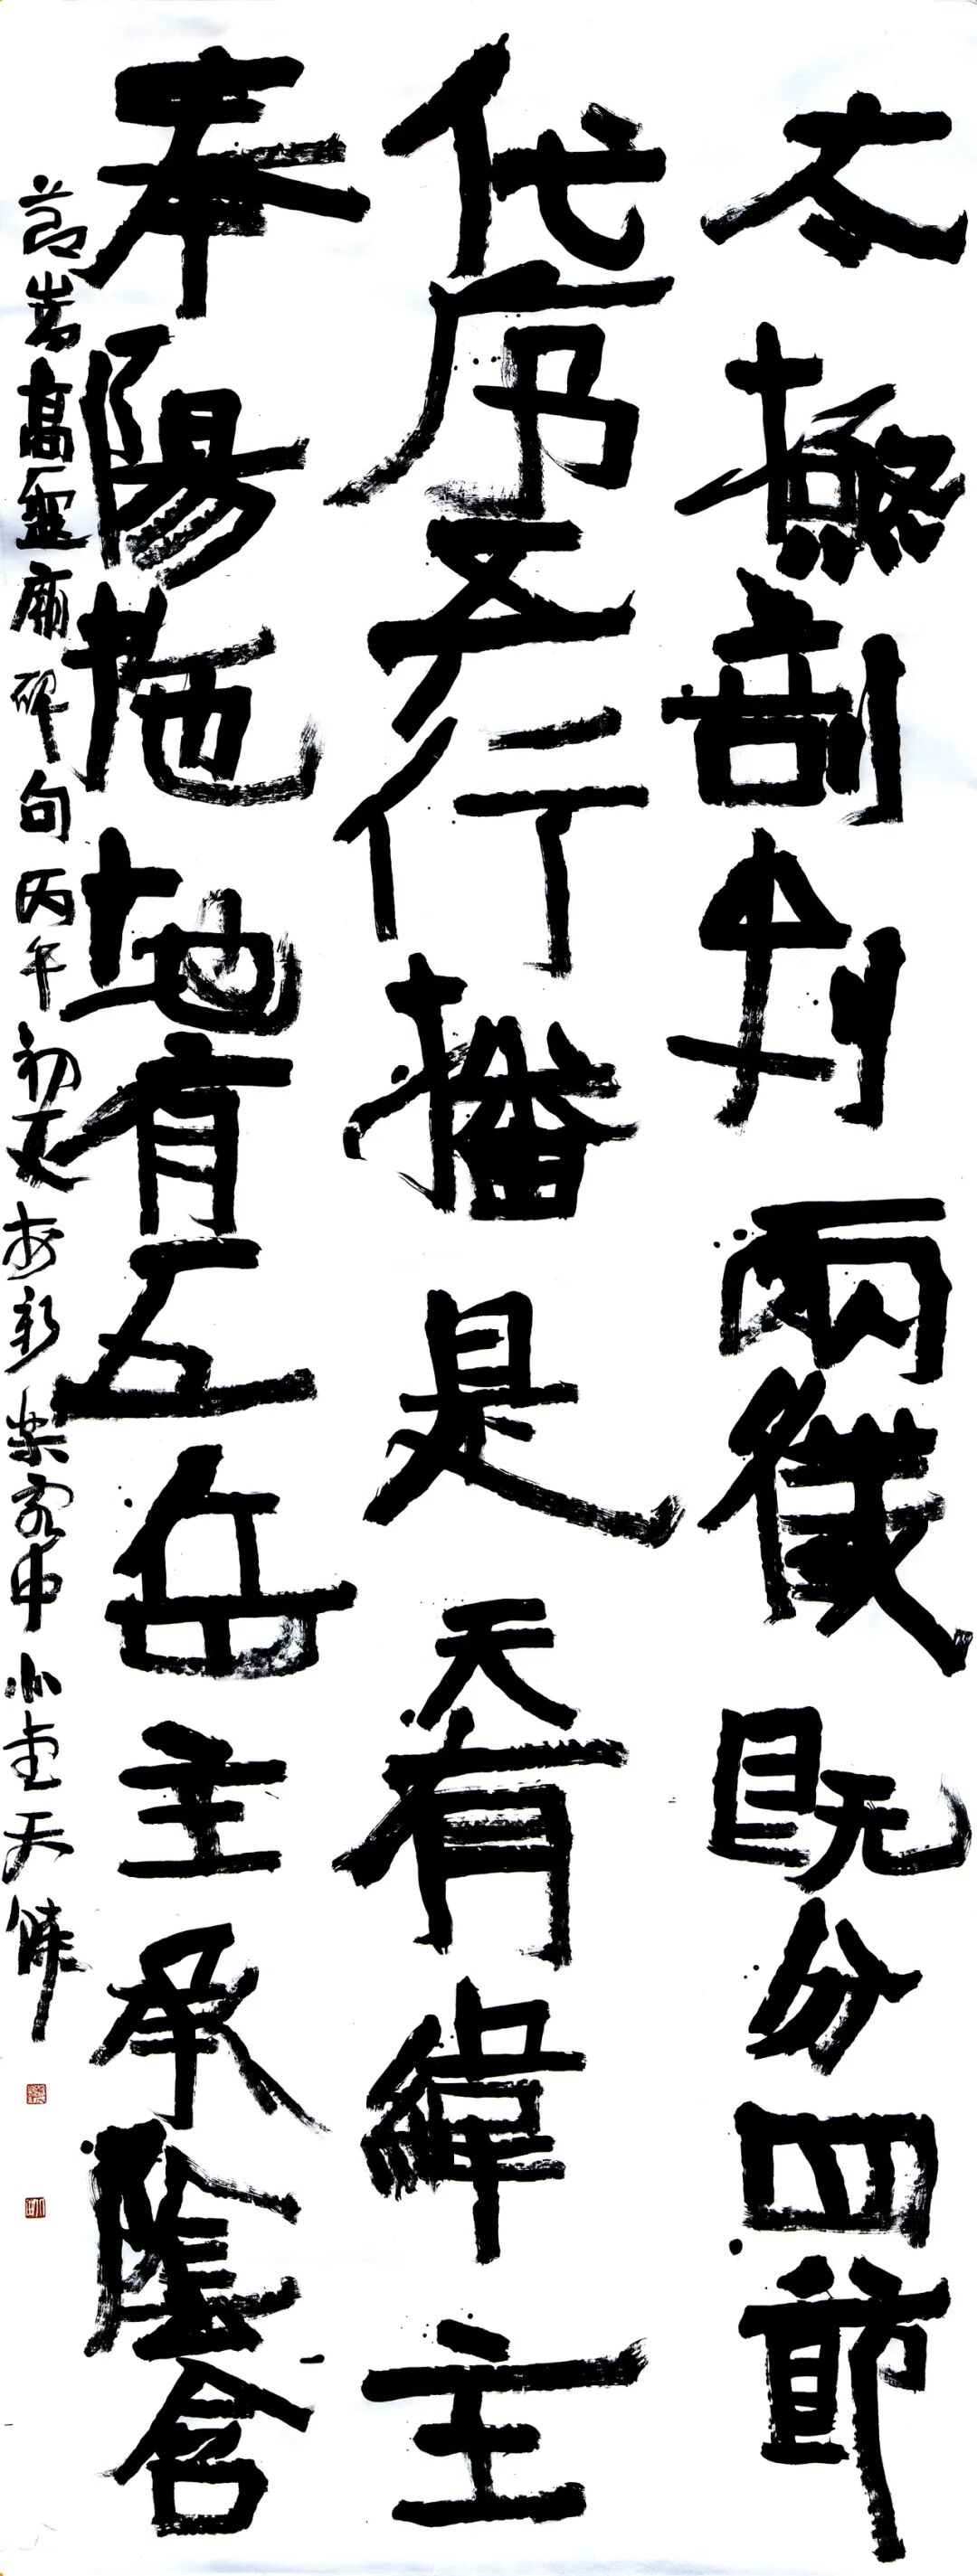 太極剖判兩儀既分四節
代序五行播是天有緯主
奉陽施地有五岳主承陰含
節嵩高靈廟碑句丙午初夏於新樂客中小堂天